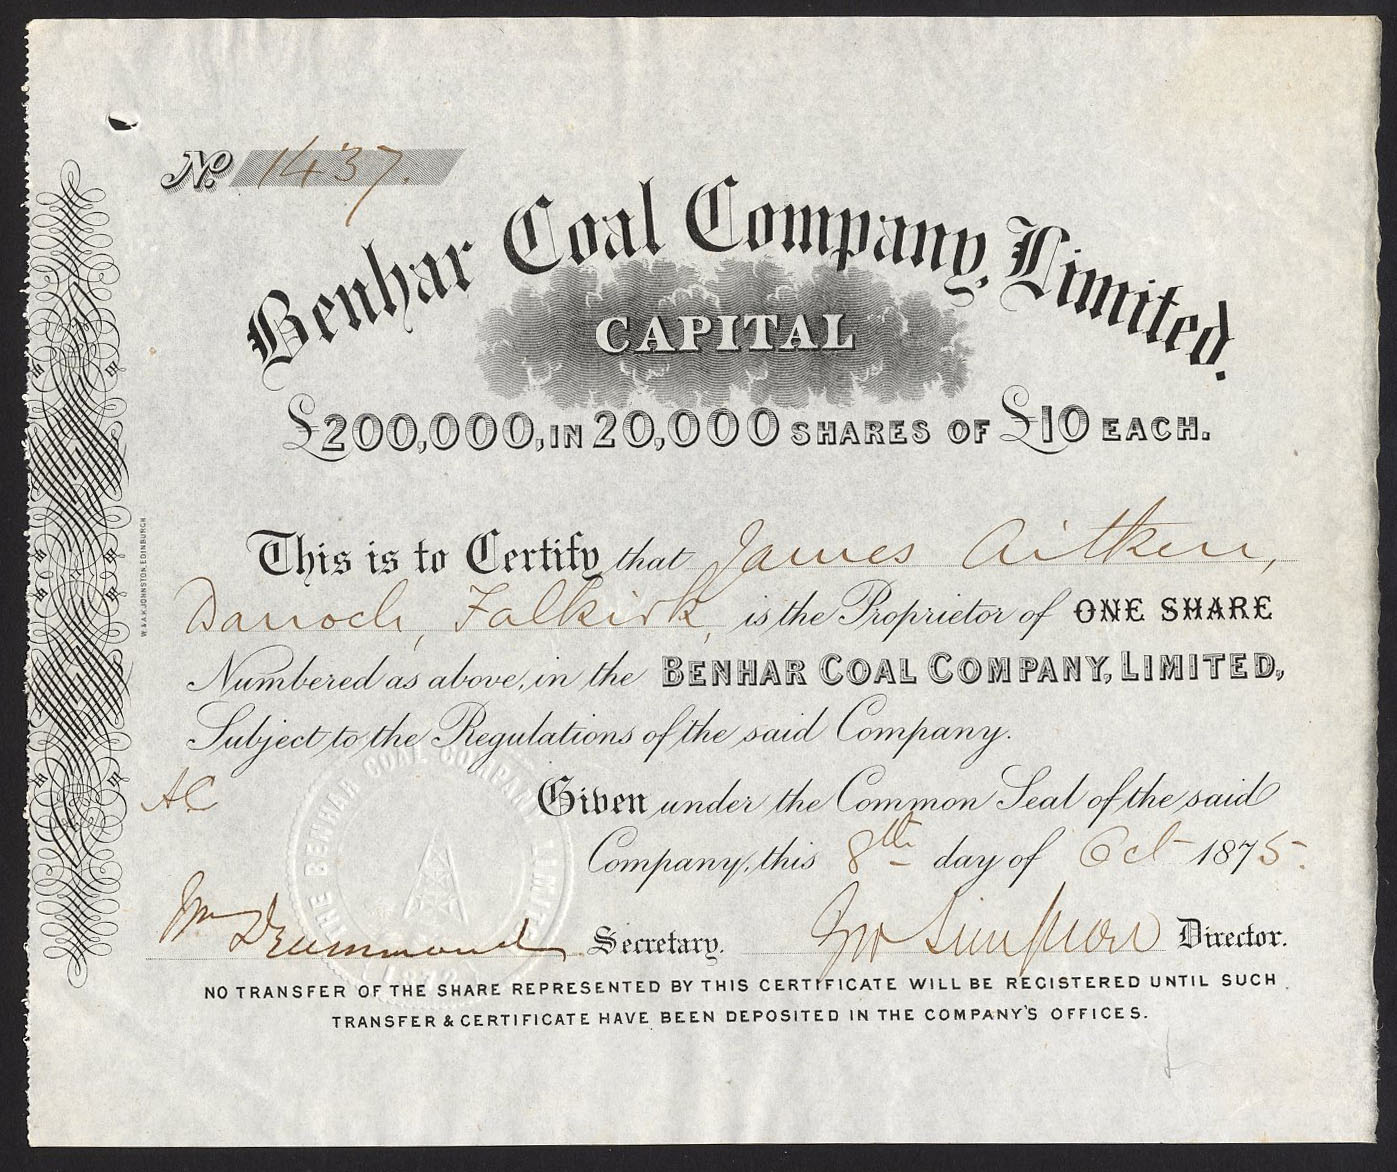 No. 1437.
Benhar Coal Company, Limited.
CAPITAL
£200,000, IN 20,000 SHARES OF £10 EACH.
This is to Certify that James Aitken,
Darroch, Falkirk, is the Proprietor of ONE SHARE
Numbered as above, in the BENHAR COAL COMPANY, LIMITED,
Subject to the Regulations of the said Company.
AC
Given under the Common Seal of the said
Company, this 8th day of Oct 1875.
Wm Drummond Secretary. Jno Simpson Director.
NO TRANSFER OF THE SHARE REPRESENTED BY THIS CERTIFICATE WILL BE REGISTERED UNTIL SUCH
TRANSFER & CERTIFICATE HAVE BEEN DEPOSITED IN THE COMPANY'S OFFICES.
W. & A.K. JOHNSTON, EDINBURGH.
THE BENHAR COAL COMPANY LIMITED
1872